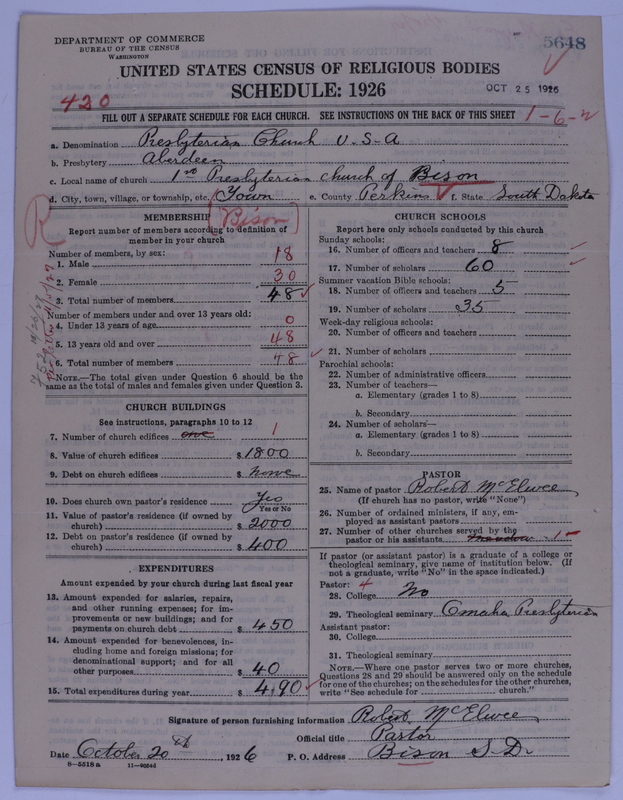 DEPARTMENT OF COMMERCE
BUREAU OF THE CENSUS
WASHINGTON
5648
UNITED STATES CENSUS OF RELIGIOUS BODIES
SCHEDULE: 1926
OCT 25 1926
420
FILL OUT A SEPARATE SCHEDULE FOR EACH CHURCH. SEE INSTRUCTIONS ON THE BACK OF THIS SHEET
1-6-
a. Denomination Presbyterian Church U.S.A
b. Presbytery Aberdeen
c. Local name of church 1st Presbyterian church of Bison
d. City, town, village, or township, etc. Town e. County Perkins f. State South Dakota
[Bison]
R
MEMBERSHIP
Report number of members according to definition of member in your church
Number of members, by sex:
1. Male 18
2. Female 30
3. Total number of members 48
Number of members under and over 13 years old:
4. Under 13 years of age 0
5. 13 years old and over 48
6. Total number of members 48
NOTE.—The total given under Question 6 should be the
same as the total of males and females given under Question 3.
CHURCH BUILDINGS
See instructions, paragraphs 10 to 12
7. Number of church edifices one 1
8. Value of church edifices $ 1800
9. Debt on church edifices $ None
10. Does church own pastor's residence Yes
Yes or No
11. Value of pastor's residence (if owned by
church) $ 2000
12. Debt on pastor's residence (if owned by
church) $ 400
EXPENDITURES
Amount expended by your church during last fiscal year
13. Amount expended for salaries, repairs,
and other running expenses; for im-
provements or new buildings; and for
payments on church debt $ 450
14. Amount expended for benevolences, in-
cluding home and foreign missions; for
denominational support; and for all
other purposes $ 40
15. Total expenditures during year $ 490
CHURCH SCHOOLS
Report here only schools conducted by this church
Sunday schools:
16. Number of officers and teachers 8
17. Number of scholars 60
Summer vacation Bible schools:
18. Number of officers and teachers 5
19. Number of scholars 35
Week-day religious schools:
20. Number of officers and teachers
21. Number of scholars
Parochial schools:
22. Number of administrative officers
23. Number of teachers—
a. Elementary (grades 1 to 8)
b. Secondary
24. Number of scholars—
a. Elementary (grades 1 to 8)
b. Secondary
PASTOR
25. Name of pastor Robert McElwee
(If church has no pastor, write "None")
26. Number of ordained ministers, if any, em-
ployed as assistant pastors
27. Number of other churches served by the
pastor or his assistants 1
If pastor (or assistant pastor) is a graduate of a college or
theological seminary, give name of institution below. (If
not a graduate, write "No" in the space indicated.)
Pastor: 4
28. College No
29. Theological seminary Omaha Presbyterian
Assistant pastor:
30. College
31. Theological seminary
NOTE.—Where one pastor serves two or more churches,
Questions 28 and 29 should be answered only on the schedule
for one of the churches; on the schedules for the other churches,
write "See schedule for church."
Signature of person furnishing information Robert McElwee
Official title Pastor
Date October 20th, 1926 P. O. Address Bison S.D.
8—5518a 11—9054d